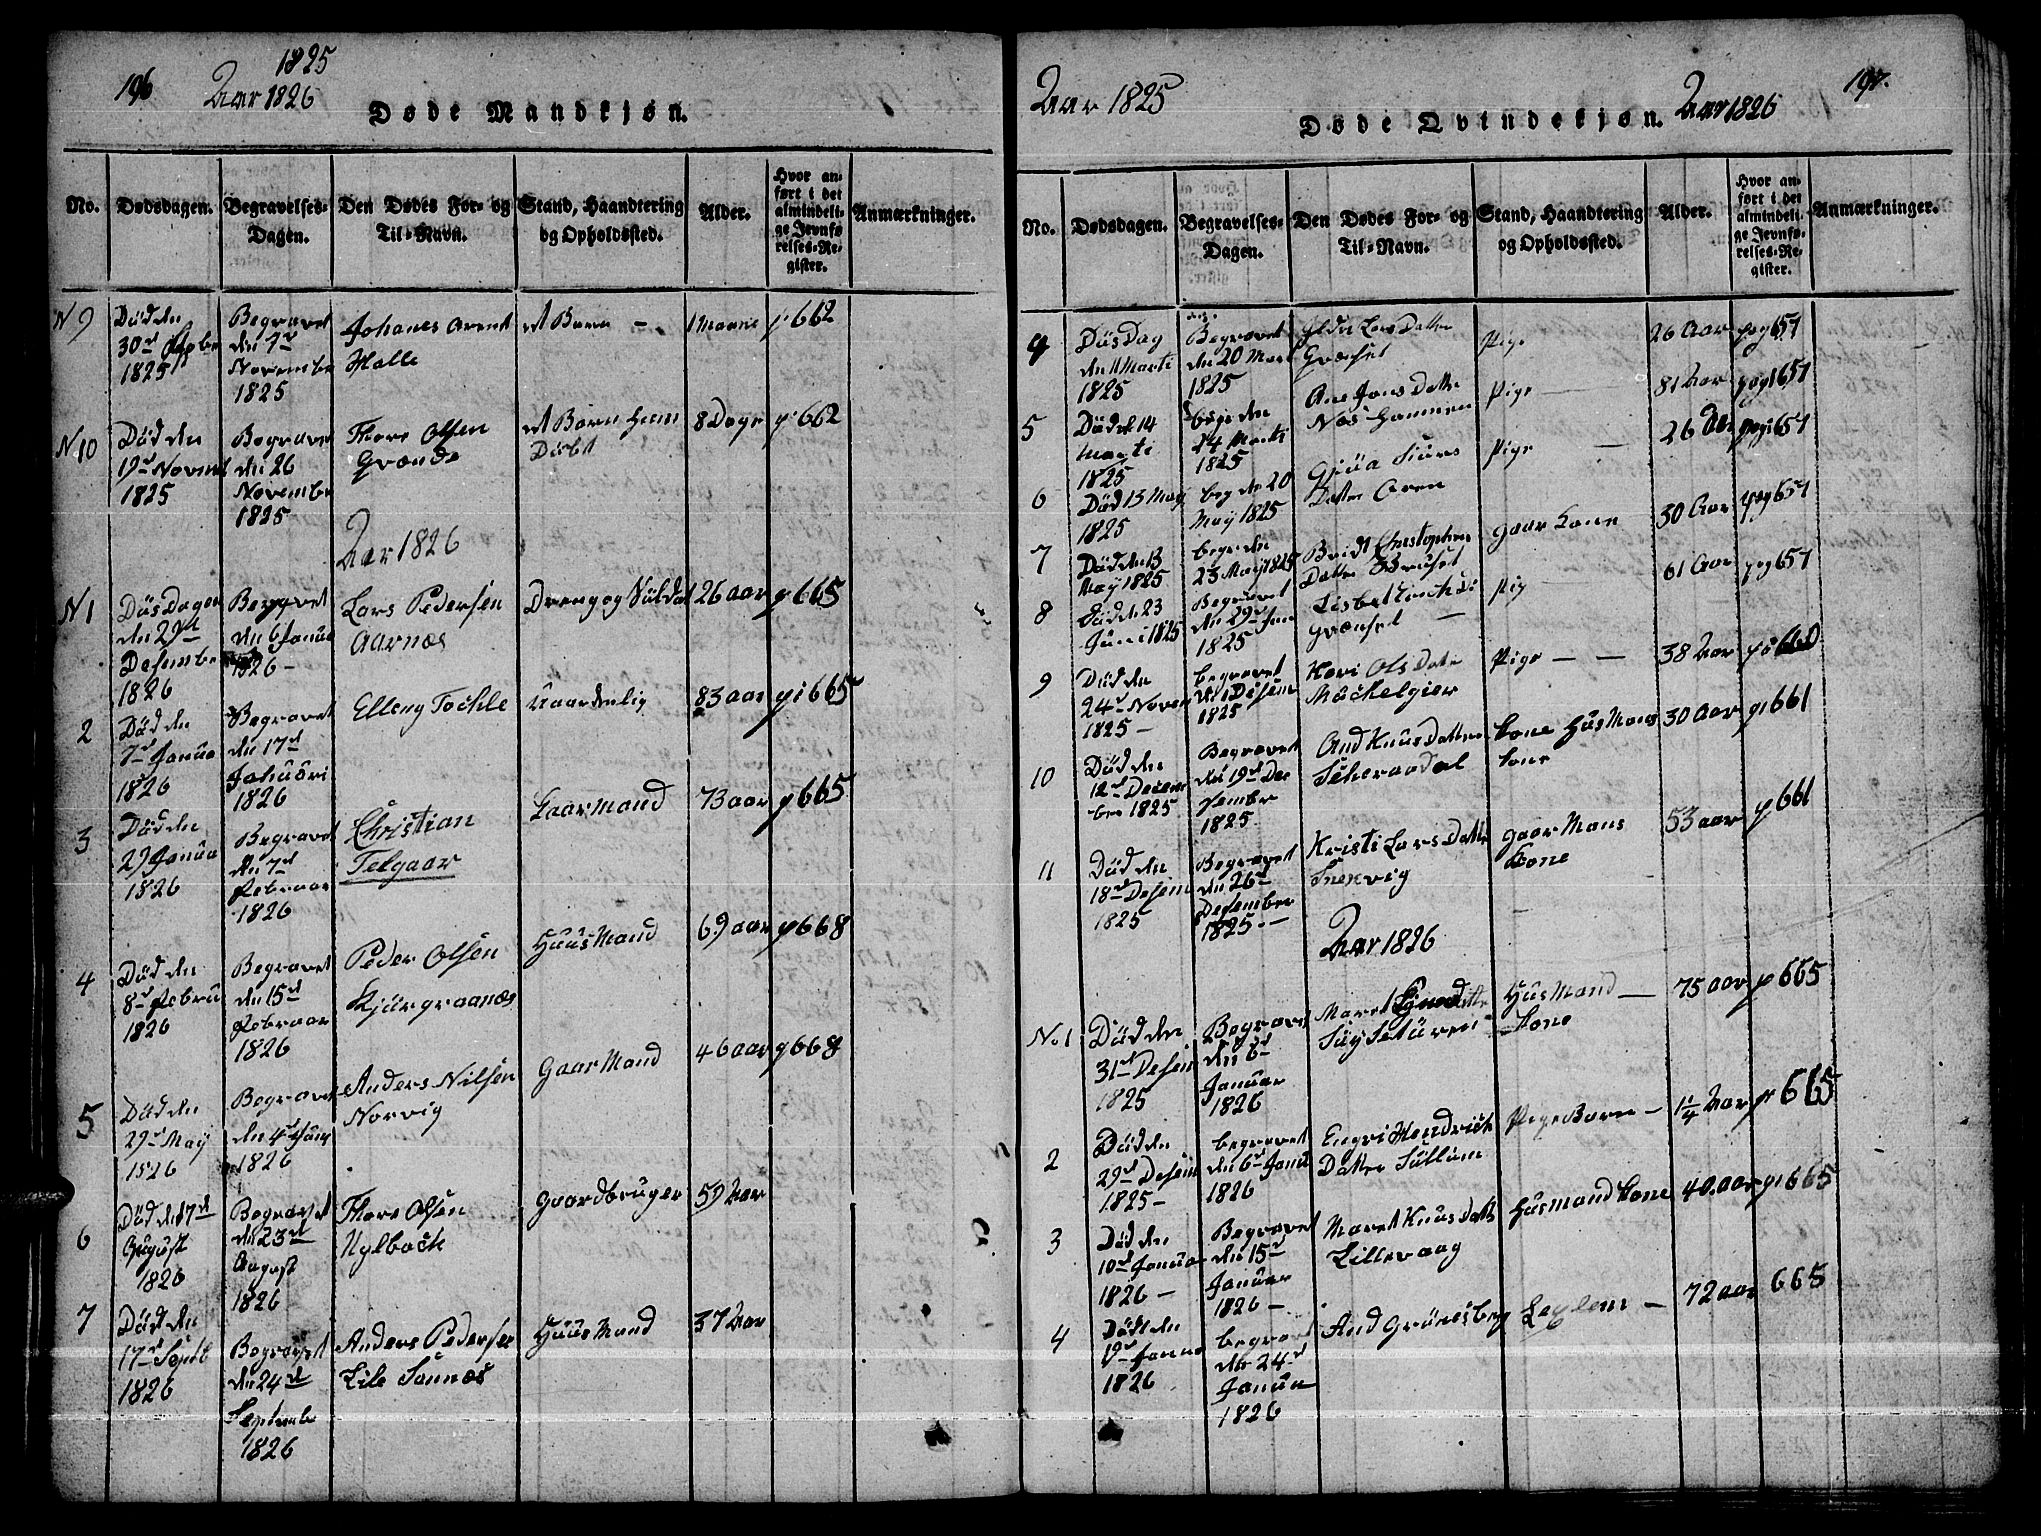 196
1825
Aar 1826
Døde Mandkjøn.
No.
Dødsdagen.
Begravelses-
Dagen.
Den Dødes For- og
Til-Navn.
Stand, Haandtering
og Opholdssted.
Alder.
Hvor an-
ført i det
almindeli-
ge Jevnfø-
relses-Re-
gister.
Anmærkninger.
N 9
Död den
30d
1825
Begravet
den
Novembr
1825
Johanes Arent
Halle
et Barn -
1 Maane
p 662
N 10
Död den
19d Novemb
1825
Begravet
den 26
Novembe
1825
Thore Olsen
Grande
et Barn Hiem
Döbt
8 Dage
p 662
Aar 1826
N 1
Dösdagen
den 29d
Desembe
1826
Begravet
den 6 Janua
1826 -
Lars Pedersen
Aarnæs
Dreng og Suldat
26 aar
p 665
2
Död den
7d Janua
1826
Begravet
den 17d
Januari
1826
Elleng Tochle
83 aar
p i 665
3
Död den
29 Janua
1826
Begravet
den 7d
Februar
1826
Christian
Telgaar
Gaarmand
73 aar
p 665
4
Död den
8d Febru
1826
Begravet
den 15d
Februar
1826
Peder Olsen
Kjürgraanæs
Huusmand
69 aar
p 668
5
Död den
29d May
1826
Begravet
den 4d
1826
Anders Nilsen
Norvig
Gaarmand
46 aar
p 668
6
Död den 17d
August
1826
Begravet
den 23d
August
1826
Thore Olsen
Nylback
Gaardbruger
59 Aar
7
Död den
17d Septb
1826
Begravet
den 24d
Septembr
1826
Anders Pedersen
Lile Sannæs
Huusmand
37 Aar
Aar 1825
Døde Qvindekjøn.
Aar 1826
197.
No.
Dødsdagen.
Begravelses-
Dagen.
Den Dødes For- og
Til-Navn.
Stand, Haandtering
og Opholdssted.
Alder.
Hvor an-
ført i det
almindeli-
ge Jevnfø-
relses-Re-
gister.
Anmærkninger.
4
Dösdag
den 11 Marti
1825
Begravet
den 20 Mart
1825
Lars Datter
Grænset
Pige
26 Aar
pag 657
5
Död d 14
Marti
1825
begr den
24 Marti
1825
Ane Jons Datte
Næs Hammen
Pige
81 Aar
pag 657
6
Död 13 May
1825
beg den 20
May 1825
Siurs
Datter Aren
Pige
26 Aar
pag 657
7
Död den 13
May 1825
begr den
23 May 1825
Bridt Christophers
Datter
Gaar Kone
30 Aar
pag 657
8
Död de 23
Juni 1825
Begravet
den 29d Jun
1825
Grænset
Pig
61 Aar
pag 657
9
Död den
24d Novem
1825 -
begravet
1825
Kari Ols Date
Mackelgier
Pige - -
38 Aar
p i 660
10
Död den
12d Desem
ber 1825
Begravet
den 19d De
sember
1825
And Knus Datter
Kone Husmans
Kone
30 Aar
p 661
11
Död den
18d Desem
1825
Begravet
den 26d
Desember
1825 -
Kristi Lars Datte
Snekvig
Gaar Mans
Kone
53 aar
p 661
Aar 1826
No 1
Död den
31d Desem
1825
Begravet
den 6d
Januar
1826
Maret
Husmand -
Kone
75 aar
p 665
2
Död den
29d Desem
1825 -
begravet
den 6d Janu
1826
Engri Hendrick
Datter Süllum
Pige Barn -
1 1/4 Aar
p 665
3
Död den
10d Janua
1826 -
Begravet
den 15d
Januar
1826 -
Maret Knus Datte
Lillevaag
Husmand Kone
40 aar
p 665
4
Död den
19d Janua
1826
begravet
den 24d
Janua
1826
And Grönesberg
Leglem -
72 aar
665